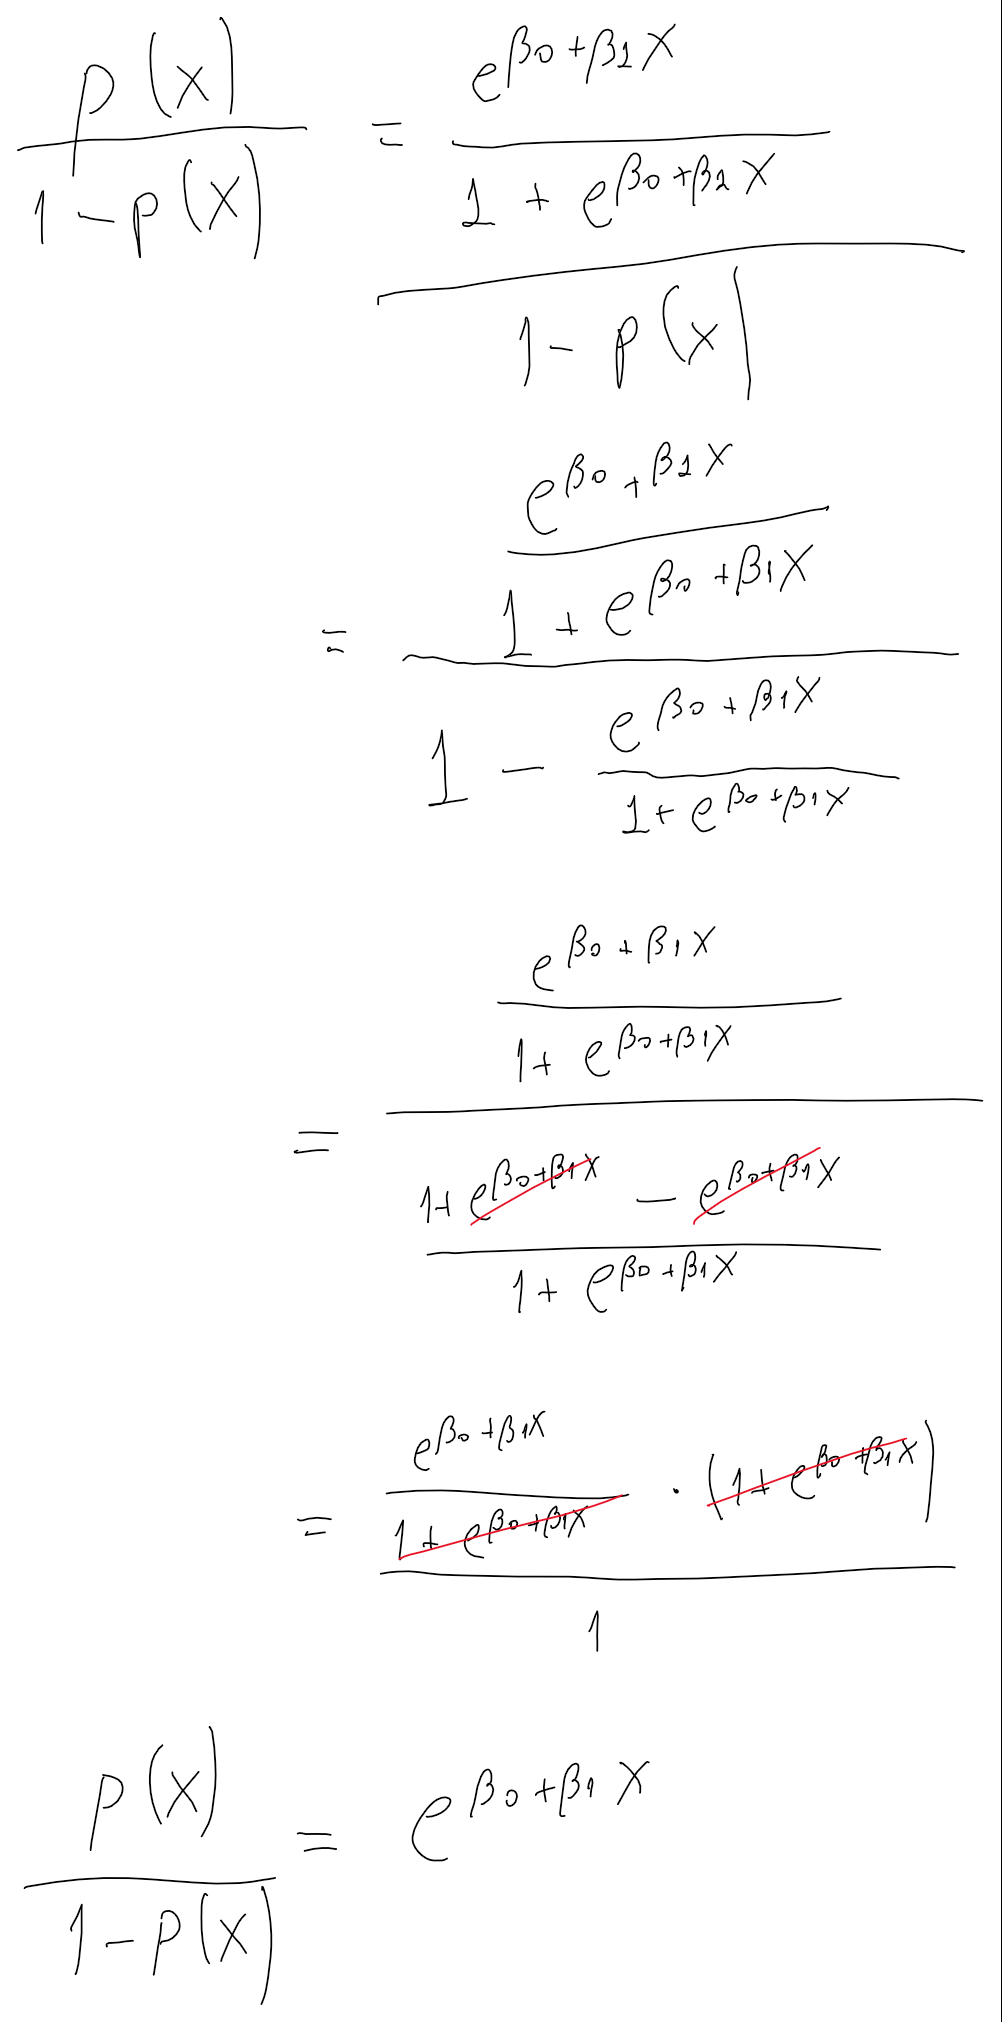 p(X) / (1 - p(X)) = (e^{β0+β1X} / (1 + e^{β0+β1X})) / (1 - p(X))
= (e^{β0+β1X} / (1 + e^{β0+β1X})) / (1 - e^{β0+β1X} / (1 + e^{β0+β1X}))
= (e^{β0+β1X} / (1 + e^{β0+β1X})) / ((1 + e^{β0+β1X} - e^{β0+β1X}) / (1 + e^{β0+β1X}))
= (e^{β0+β1X} / (1 + e^{β0+β1X}) · (1 + e^{β0+β1X})) / 1
p(X) / (1 - p(X)) = e^{β0+β1X}